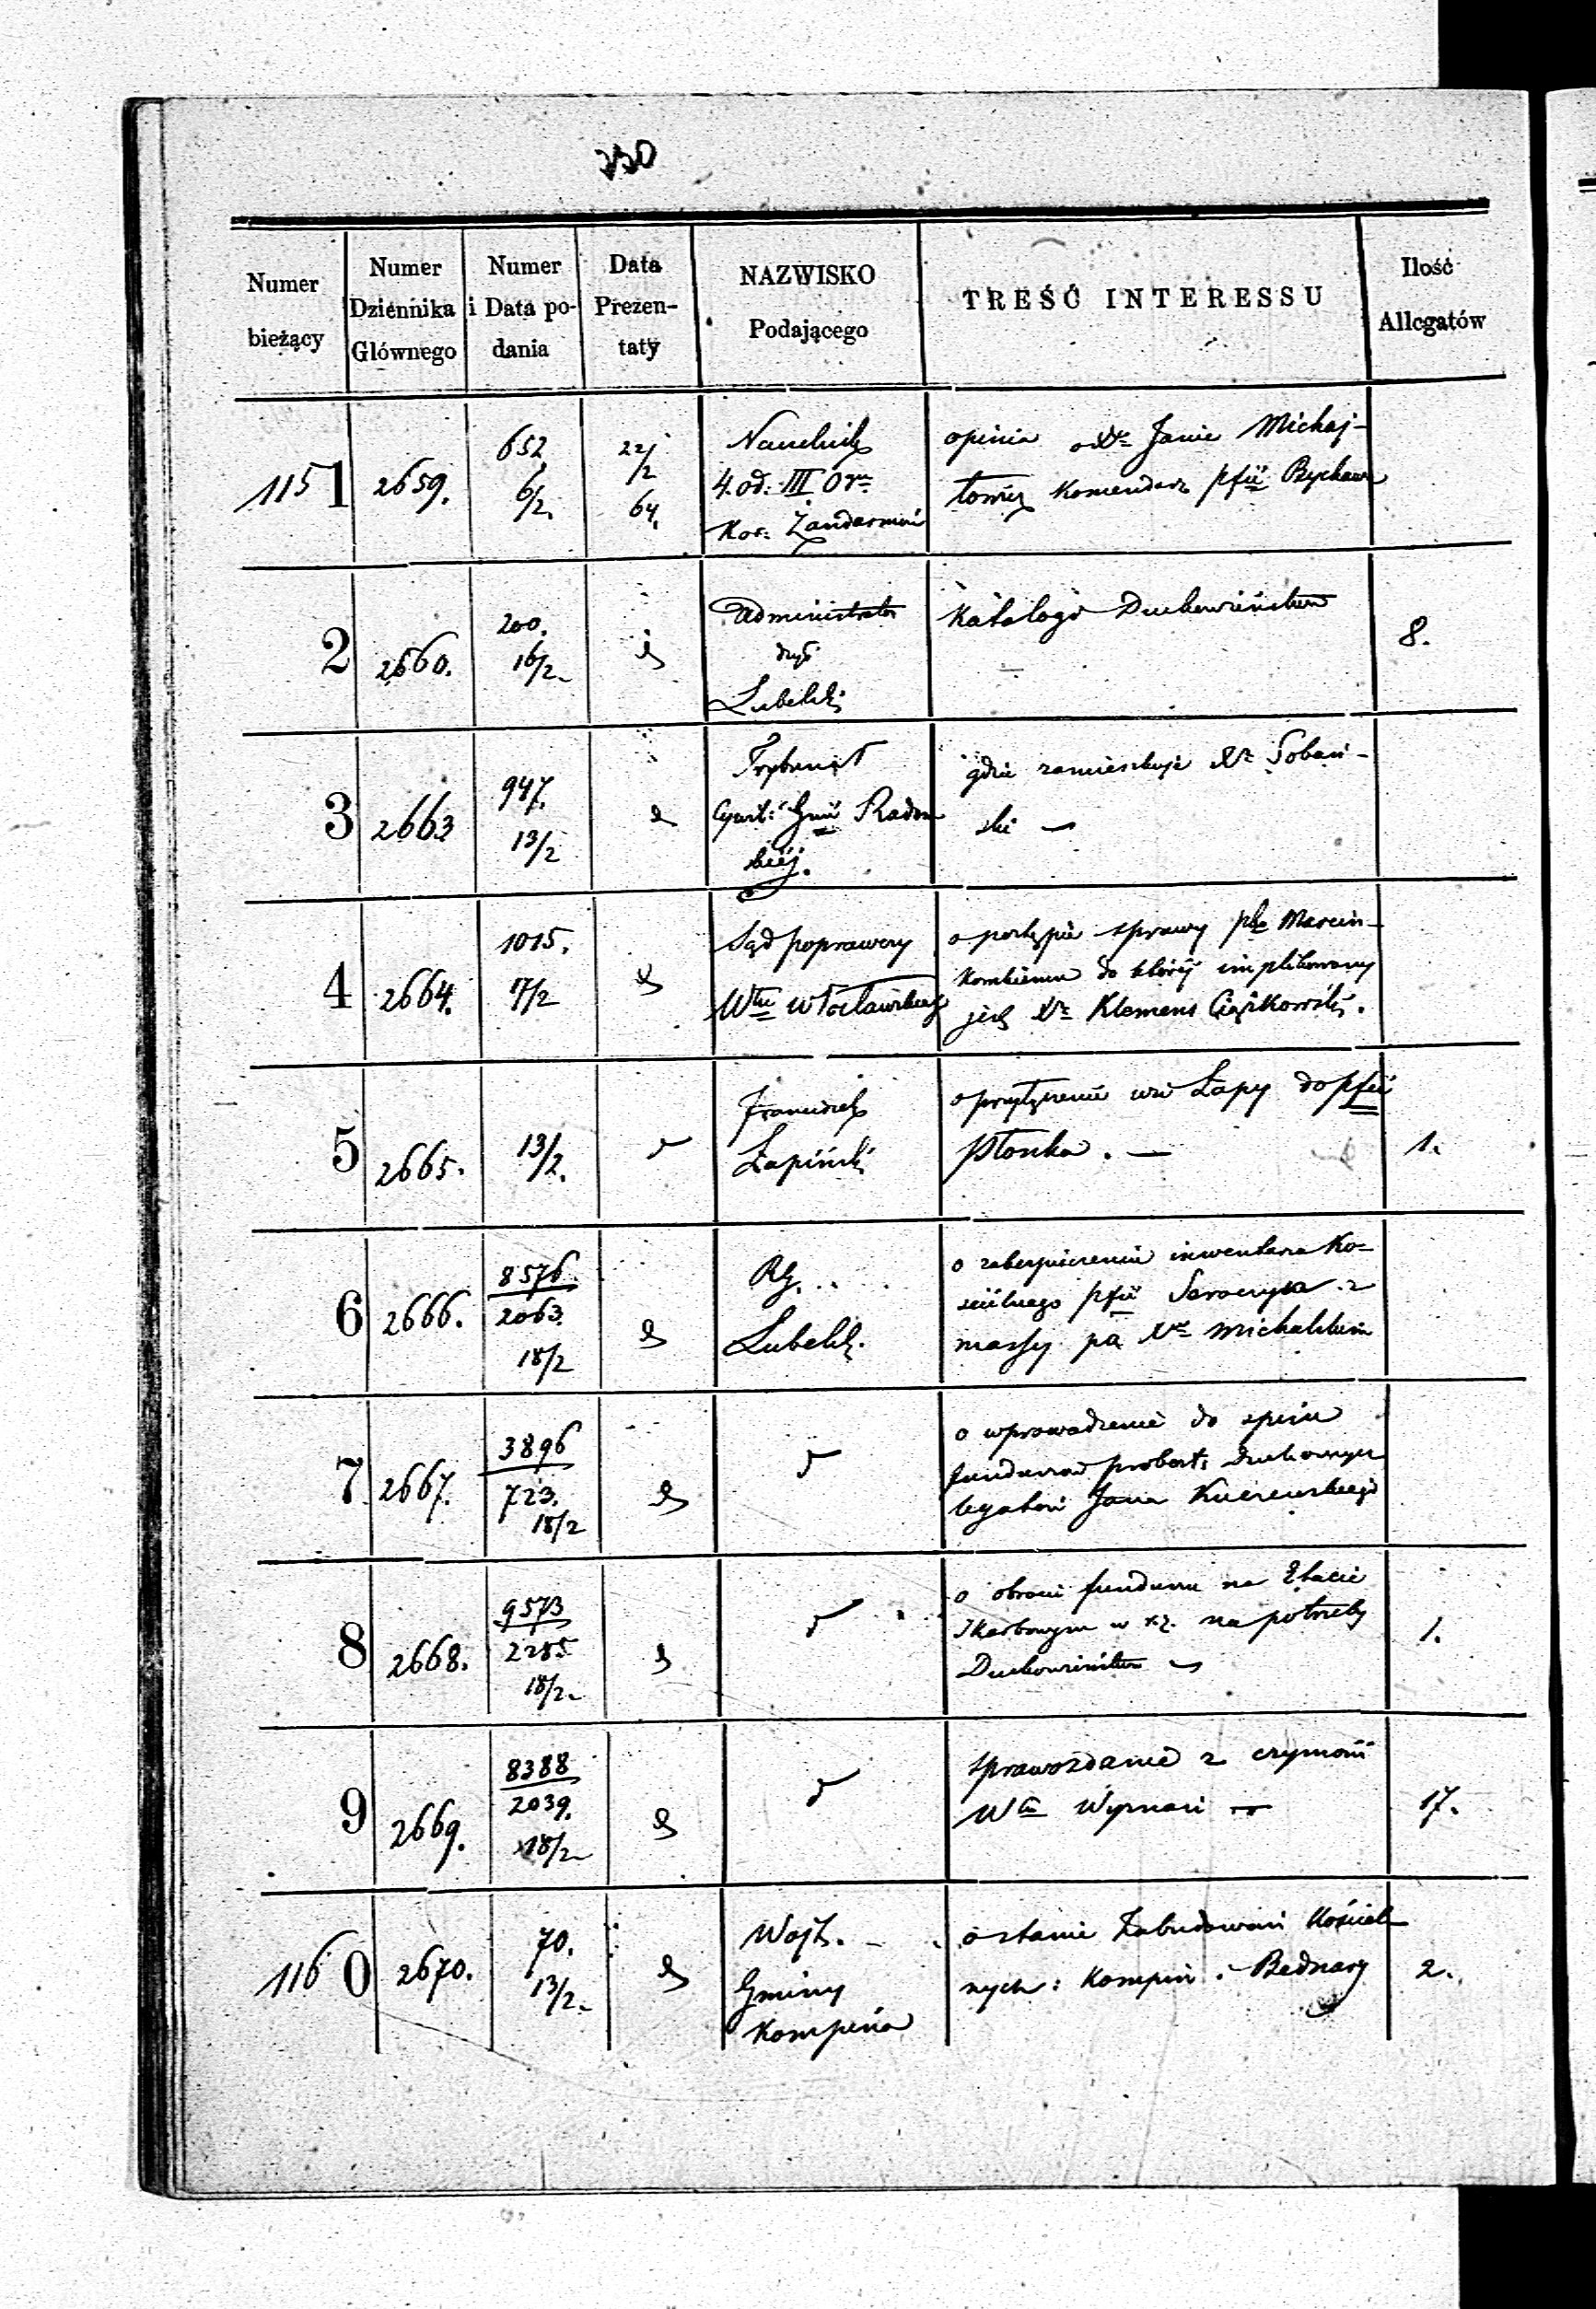 230
Numer bieżący
Numer Dziennika Głównego
Numer i Data podania
Data Prezentaty
NAZWISKO Podającego
TREŚĆ INTERESSU
Ilość Allegatów
1151
2659.
652
6/2.
22/2
64.
Naczelnik
4. od: III O
Kor: Żandarmerii
opinia o Xe Janie Michaj-
łowicz Komendarz pfii Bychawa
2
2660.
200.
16/2
Administrator
dyec
Lubelski
Katalogi Duchowieństwa
8.
3
2663
947.
13/2
Trybunał
Cywil: Gnii Radom
skiej.
gdzie zamieszkuje Xz Sobań-
ski
4
2664.
1015.
17/2
Sąd poprawczy
Włłu Włocławskiego
o postępie sprawy pko Marcin-
kowskiemu do której implikowany
jest Xz Klemens Ciążkowski.
5
2665.
13/2.
Franciszek
Łapiński
o przyłączenie wsi Łapy do pfii
Płonka.
1.
6
2666.
8576
2063.
18/2
Rg.
Lubelsk.
o zabezpieczenie inwentarza Ko-
ścielnego pfii z
massy po Xe Michalskim
7
2667.
3896
723.
18/2
o wprowadzenie do spisu
funduszów probost: Duchownym
legatori Jana
8
2668.
9573
2285
18/2
o obrocie funduszu na Etacie
Skarbowym w na potrzeby
Duchowieństwa
1.
9
2669.
8388
2039.
18/2
sprawozdanie z czynności
Włłu Wyznań
17.
1160
2670.
70.
13/2.
Wójt.
Gminy
Kompina
o stanie Zabudowań Kościel
nych: Kompin i Bednary
2.